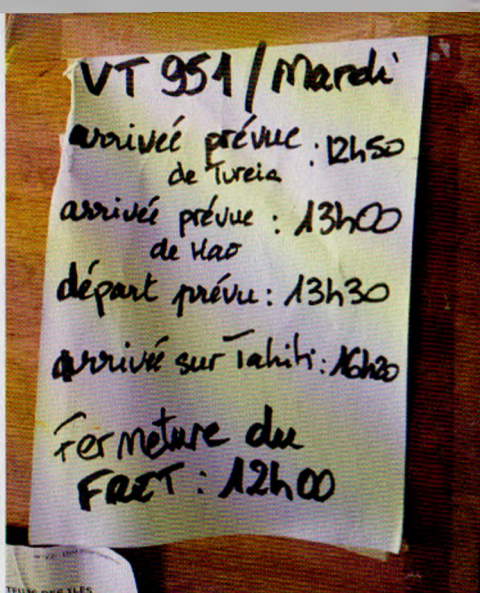 VT 951 / Mardi
arrivée prévue : 12h50
de Tureia
arrivée prévue : 13h00
de Hao
départ prévu : 13h30
arrivée sur Tahiti : 16h20
Fermeture du
FRET : 12h00